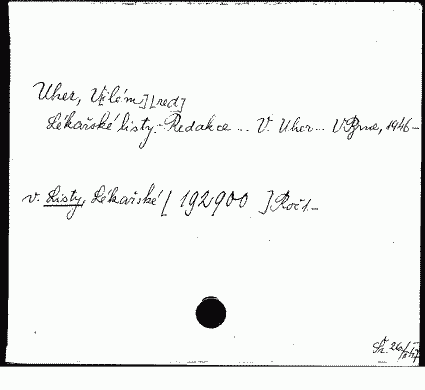 Uher, V[ilém] [red]
Lékařské listy. Redakce ... V. Uher ... V Brně, 1946-
v. Listy, Lékařské [ 192900 ] Roč 1-